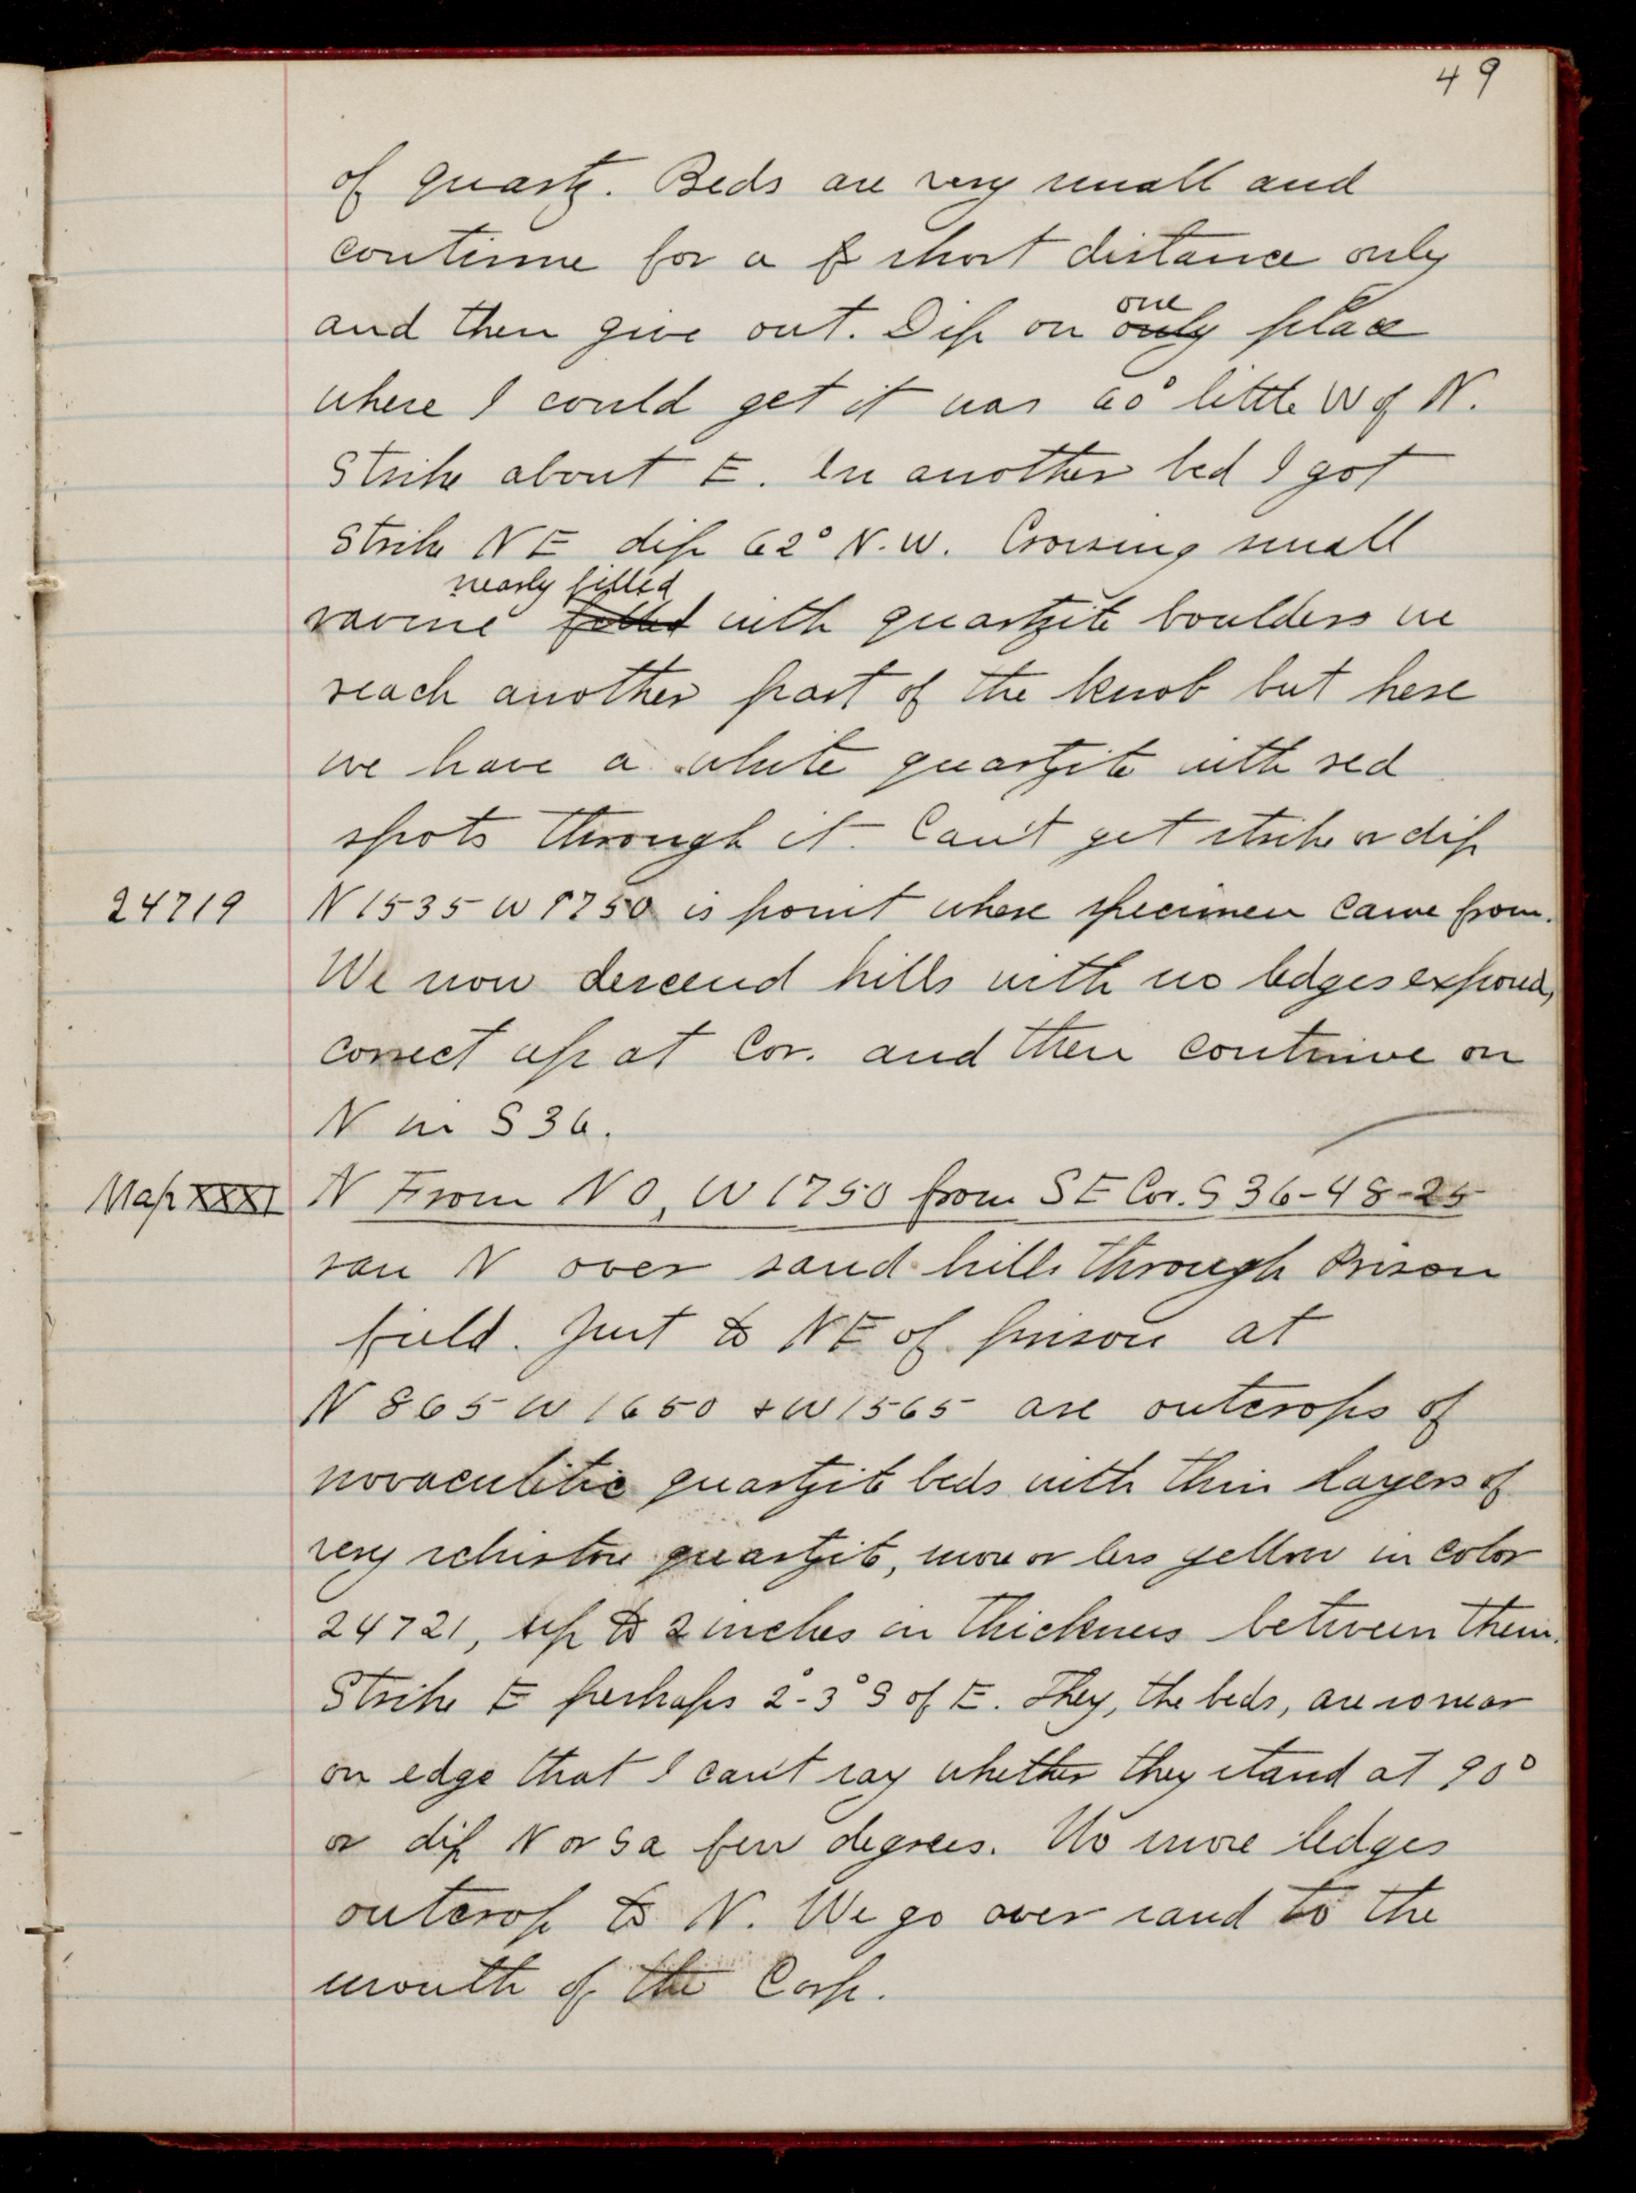 49
of quartz. Beds are very small and
continue for a short distance only
and then give out. Dip on one only place
where I could get it was 60° little W of N.
Strike about E. In another bed I got
Strike NE dip 62° N.W. Crossing small
nearly filled
ravine filled with quartzite boulders we
reach another part of the knob but here
we have a white quartzite with red
spots through it. Can't get strike or dip
24719 N 1535 W 1750 is point where specimen came from.
We now descend hills with no ledges exposed,
correct up at Cor. and then continue on
N in S 36.
Map XXXI N From N 0, W 1750 from SE Cor. S 36-48-25
ran N over sand hills through Prison
field. Just to NE of prison at
N 865 W 1650 + W 1565 are outcrops of
novaculitic quartzite beds with thin layers of
very schistose quartzite, more or less yellow in color
24721, up to 2 inches in thickness between them.
Strike E perhaps 2°-3° S of E. They, the beds, are so near
on edge that I can't say whether they stand at 90°
or dip N or S a few degrees. No more ledges
outcrop to N. We go over sand to the
mouth of the Carp.